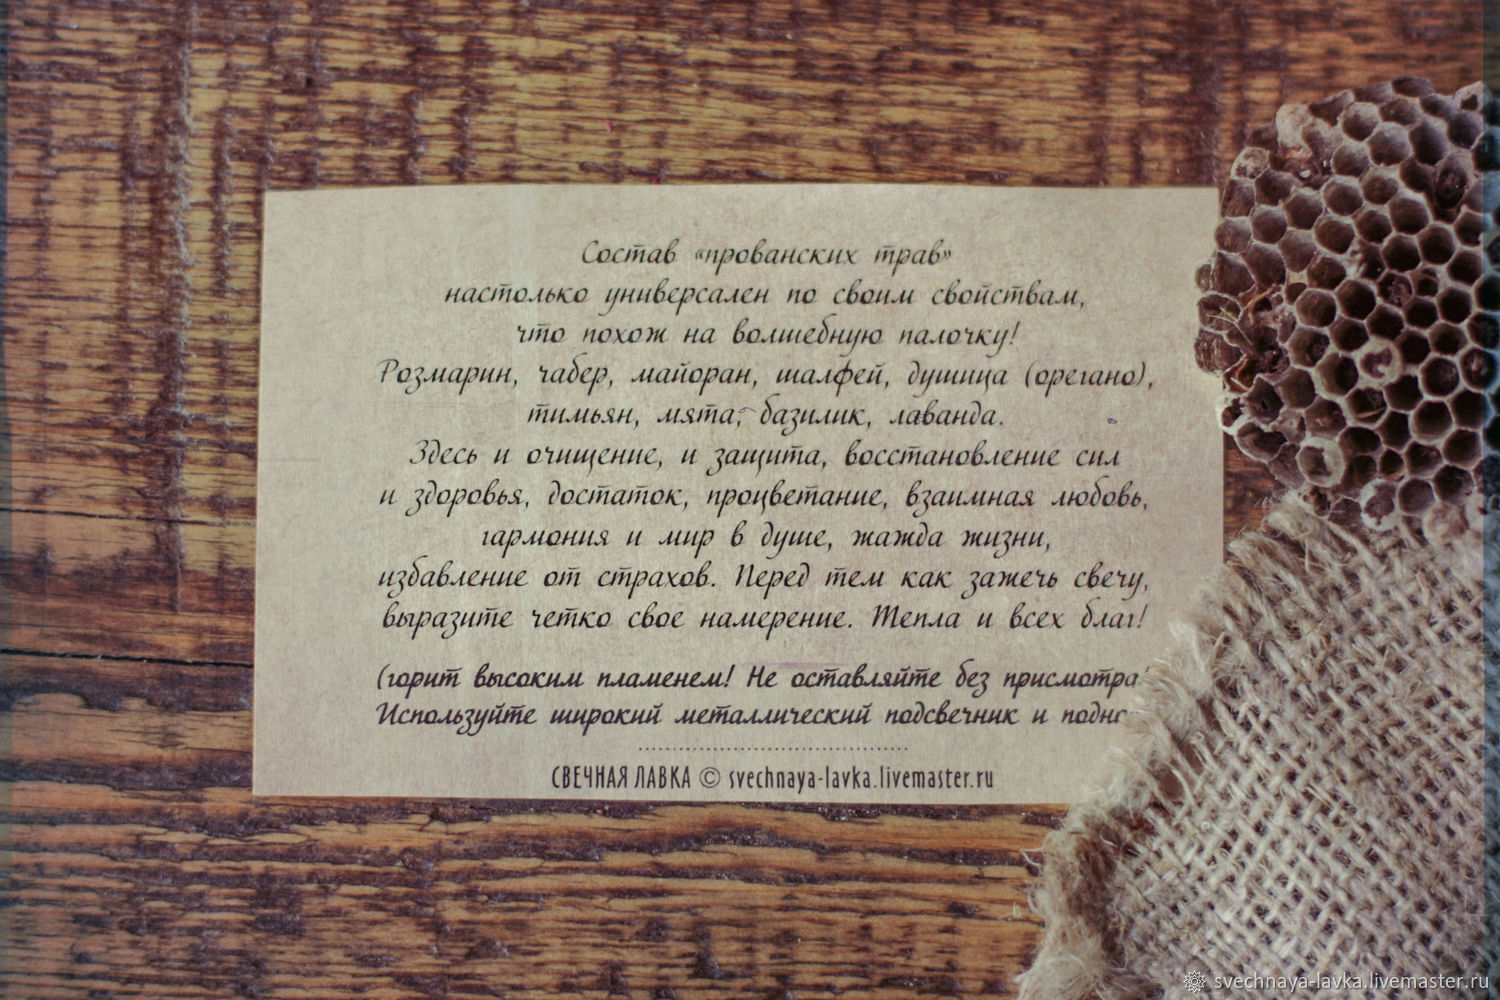 Состав «прованских трав»
настолько универсален по своим свойствам,
что похож на волшебную палочку!
Розмарин, чабер, майоран, шалфей, душица (орегано),
тимьян, мята, базилик, лаванда.
Здесь и очищение, и защита, восстановление сил
и здоровья, достаток, процветание, взаимная любовь,
гармония и мир в душе, жажда жизни,
избавление от страхов. Перед тем как зажечь свечу,
выразите четко свое намерение. Тепла и всех благ!
(горит высоким пламенем! Не оставляйте без присмотра!
Используйте широкий металлический подсвечник и
СВЕЧНАЯ ЛАВКА © svechnaya-lavka.livemaster.ru
svechnaya-lavka.livemaster.ru